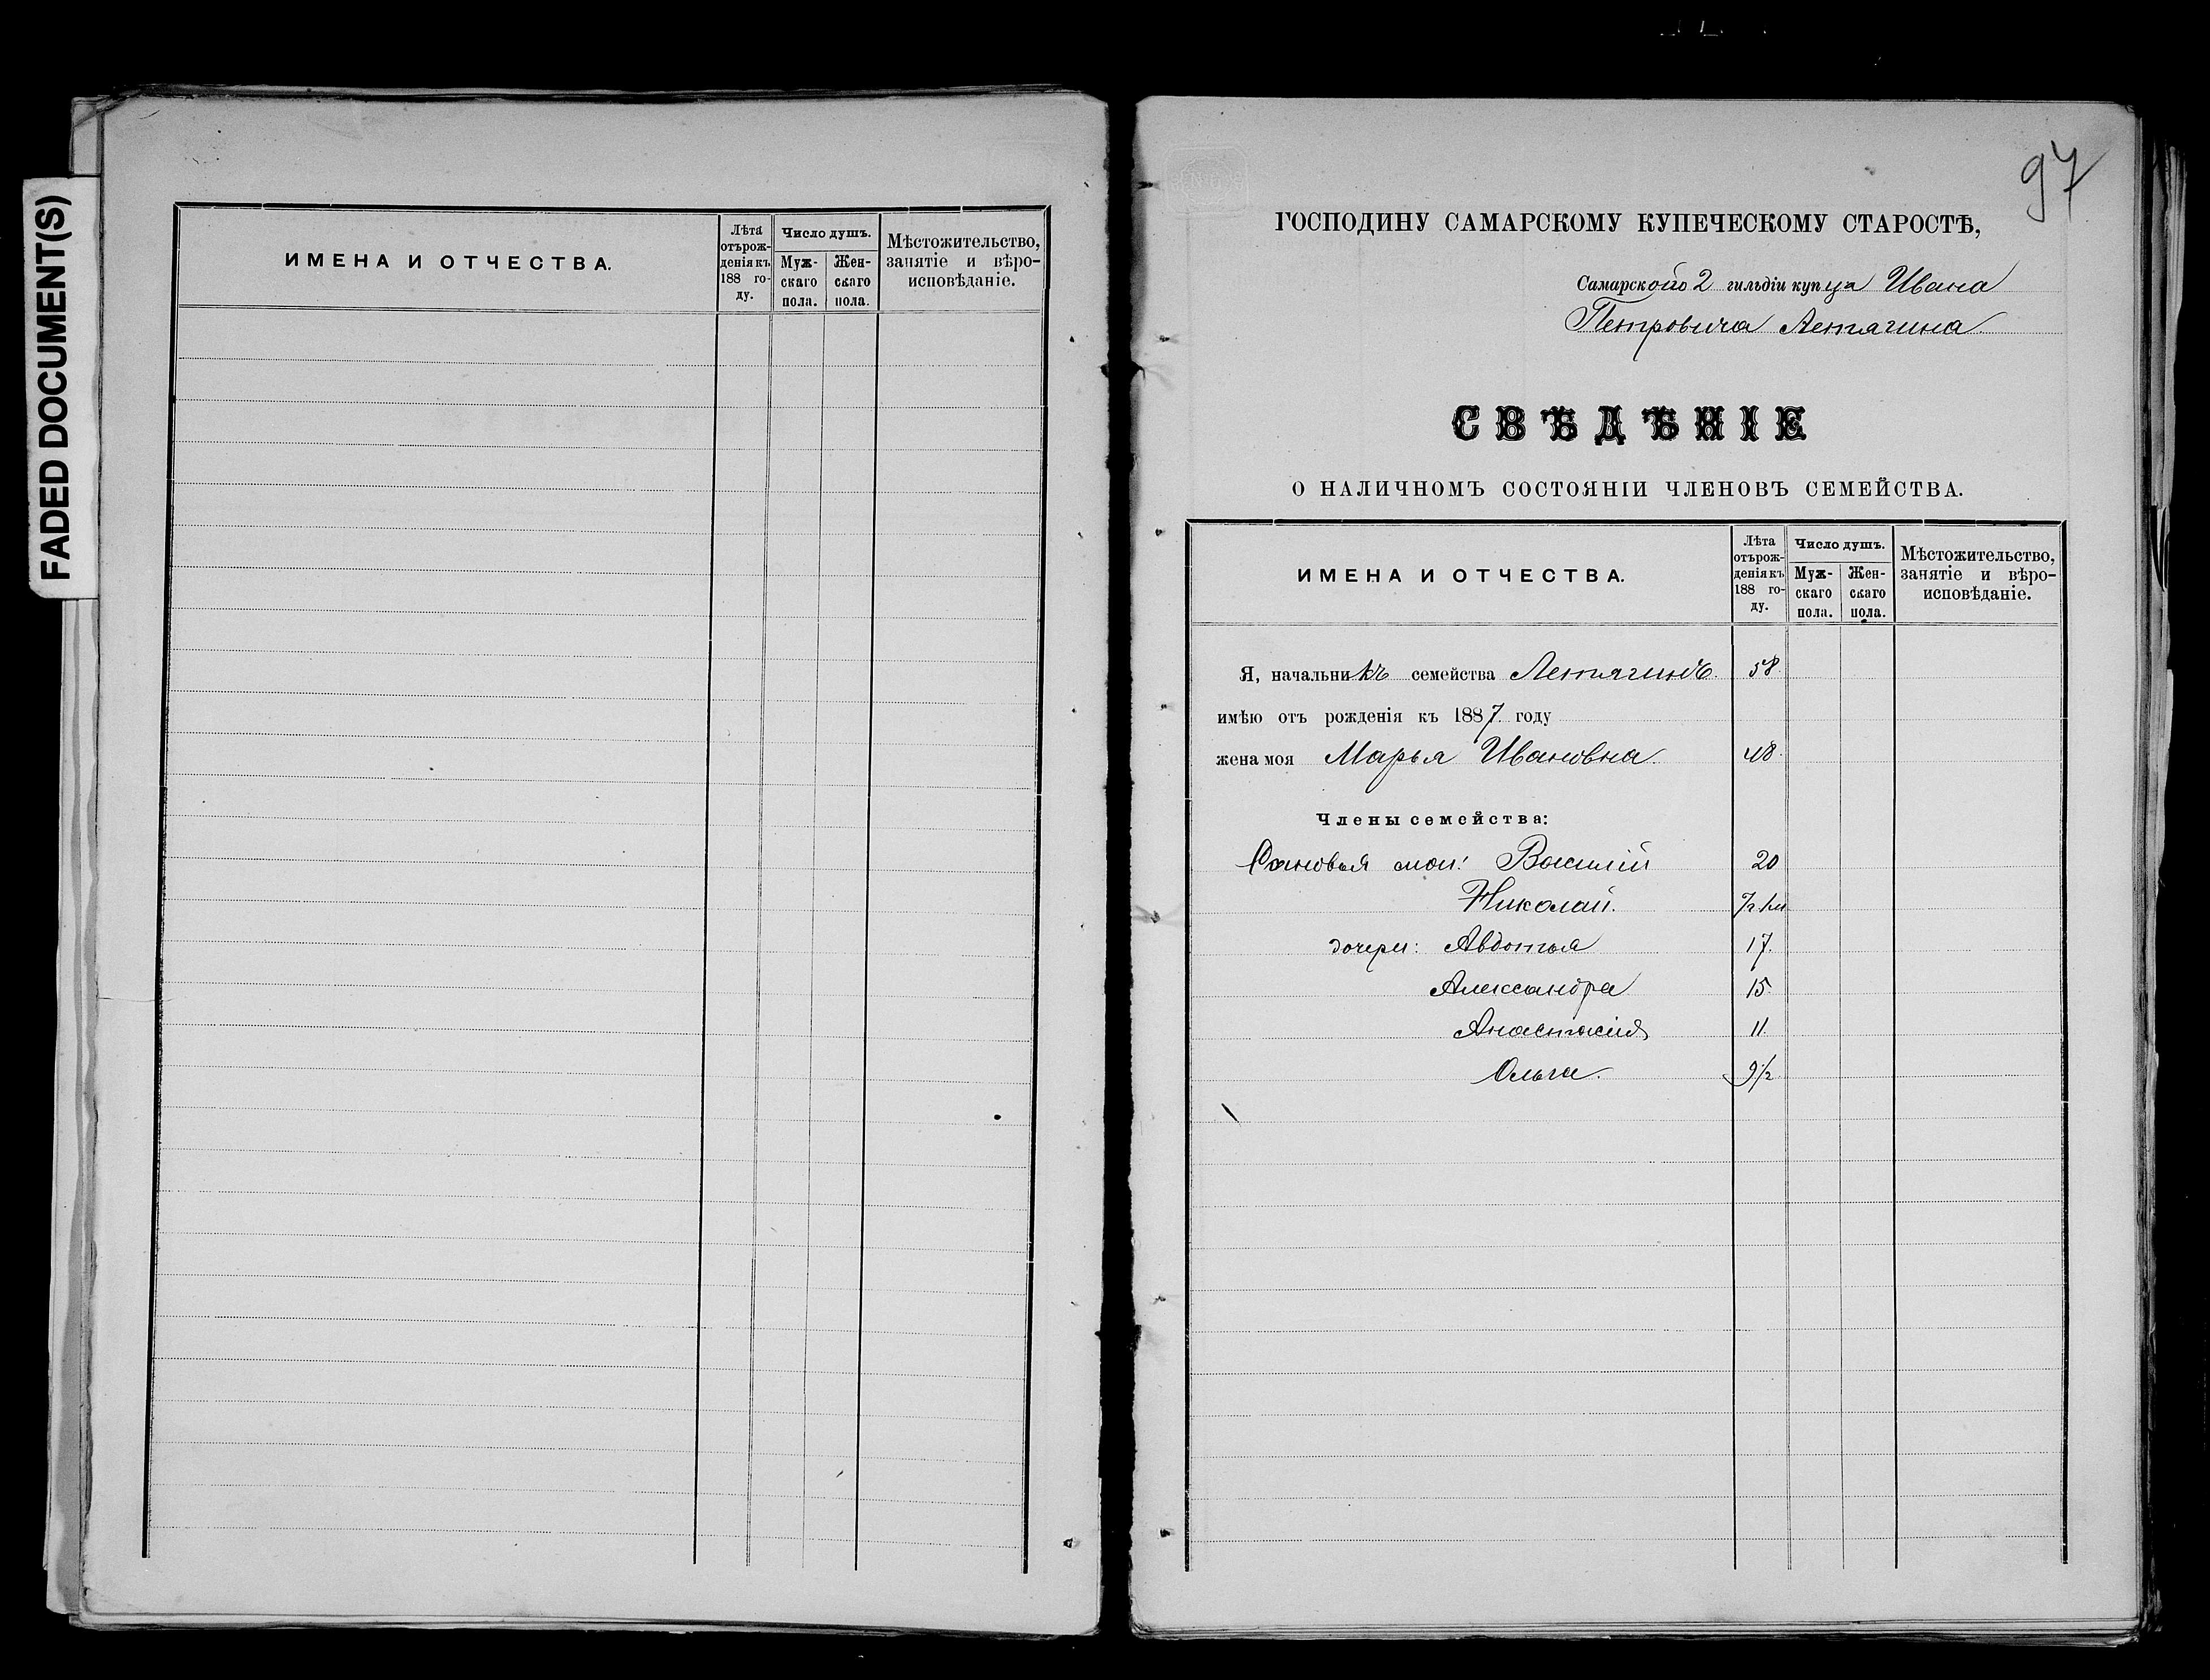 FADED DOCUMENT(S)
ИМЕНА И ОТЧЕСТВА.
Лѣта отърожденія къ 188 году.
Число душъ.
Мужскаго пола.
Женскаго пола.
Мѣстожительство, занятіе и вѣроисповѣданіе.
97
ГОСПОДИНУ САМАРСКОМУ КУПЕЧЕСКОМУ СТАРОСТѢ,
Самарской 2 гильдіи купца Ивана
Петровича Летягина
СВѢДѢНІЕ
О НАЛИЧНОМЪ СОСТОЯНІИ ЧЛЕНОВЪ СЕМЕЙСТВА.
ИМЕНА И ОТЧЕСТВА.
Лѣта отърожденія къ 188 году.
Число душъ.
Мужскаго пола.
Женскаго пола.
Мѣстожительство, занятіе и вѣроисповѣданіе.
Я, начальникъ семейства Летягинъ 58
имѣю отъ рожденія къ 1887 году
жена моя Марья Ивановна. 48
Члены семейства:
Сыновья мои: Василій 20
Николай.
дочери: Авдотья 17.
Александра 15
Анастасія 11.
Ольга. 9 1/2